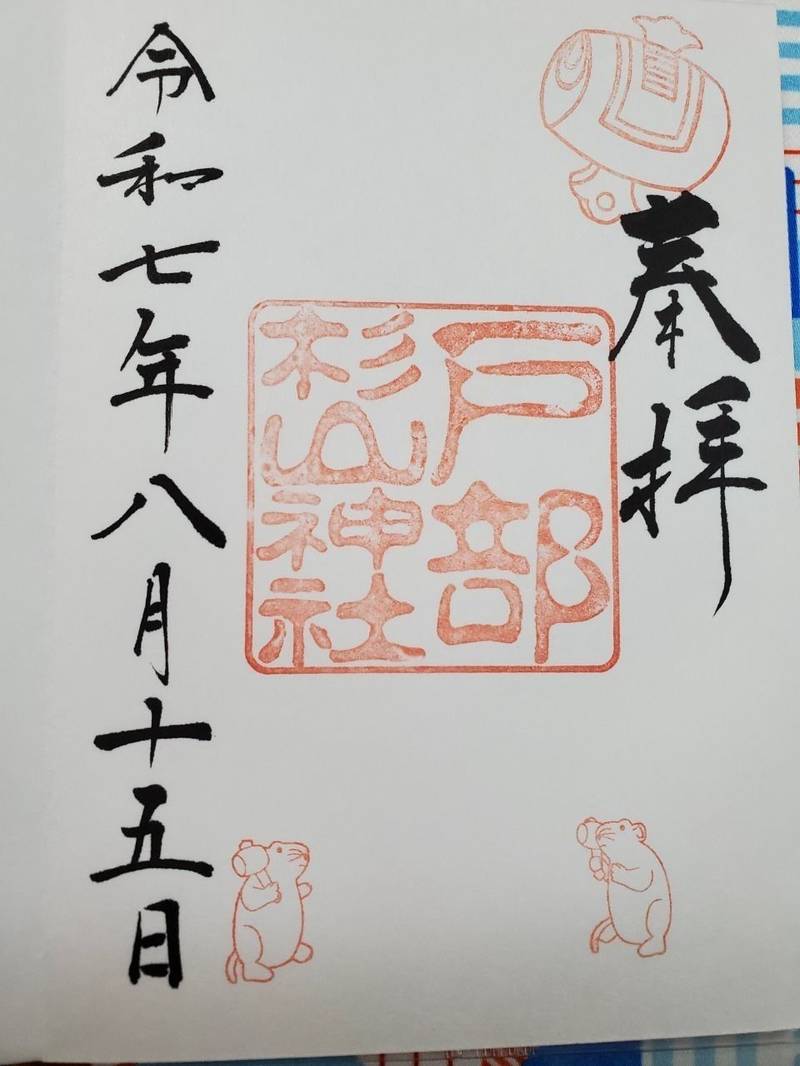 奉拝
戸部
杉山神社
令和七年八月十五日